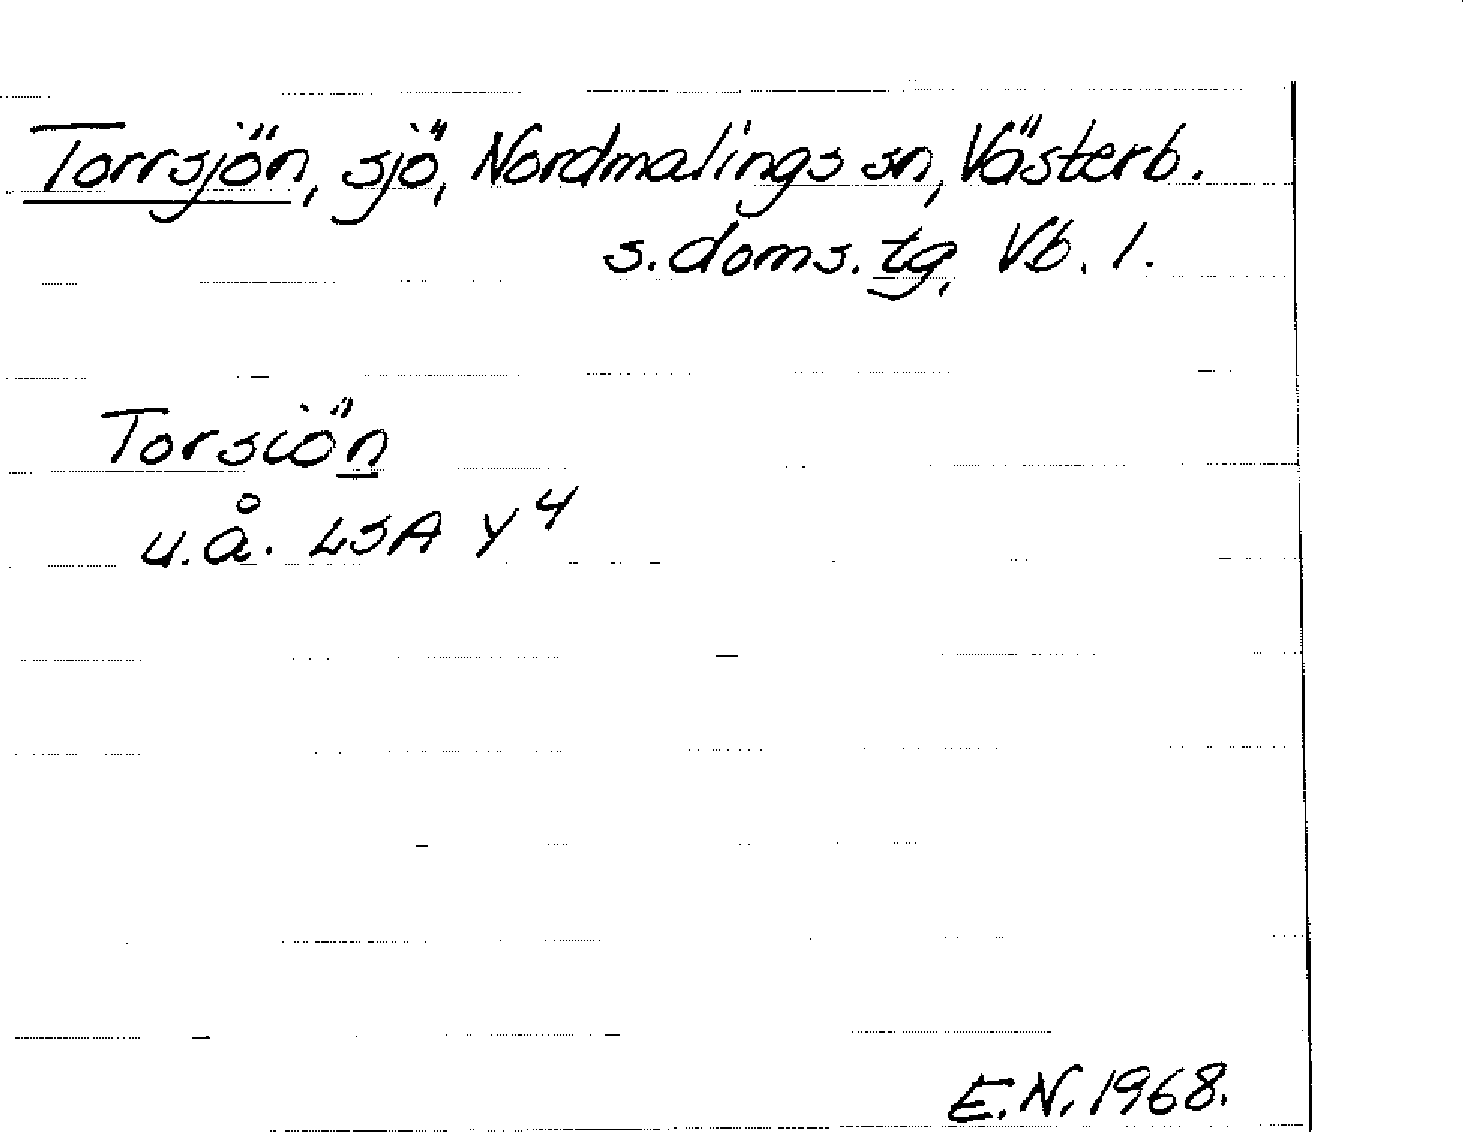 Torrsjön, sjö, Nordmalings sn, Västerb.
s. doms. tg, Vb. l.
Torsiön
u.å. LSA Y 4
E.N. 1968.